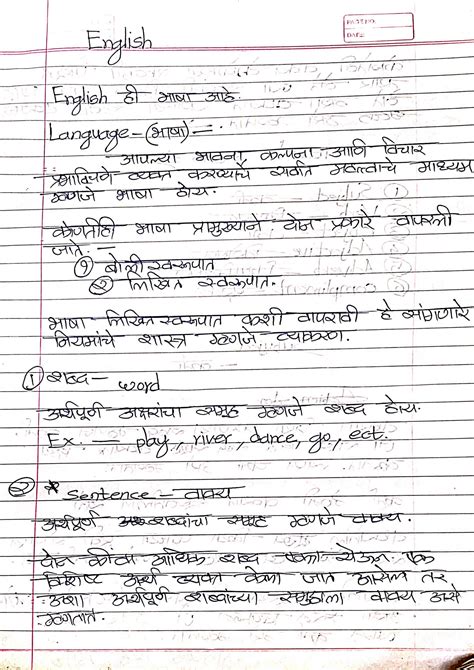 PAGE NO.
DATE
English
English ही भाषा आहे.
Language - (भाषा) :-
आपल्या भावना कल्पना आणि विचार
प्रभावीपणे व्यक्त करण्याचे सर्वात महत्वाचे माध्यम
म्हणजे भाषा होय.
कोणतीही भाषा प्रामुख्याने दोन प्रकारे वापरली
जाते. -
① बोली स्वरूपात
② लिखित स्वरूपात.
भाषा लिखित स्वरूपात कशी वापरावी हे सांगणारे
नियमांचे शास्त्र म्हणजे व्याकरण.
① शब्द - word
अर्थपूर्ण अक्षरांचा समूह म्हणजे शब्द होय.
Ex. - play, river, dance, go, ect.
② * Sentence - वाक्य
अर्थपूर्ण शब्दांचा समूह म्हणजे वाक्य.
दोन किंवा अधिक शब्द एकत्र येऊन एक
विशिष्ट अर्थ व्यक्त केला जात असेल तर
अशा अर्थपूर्ण शब्दांच्या समूहाला वाक्य असे
म्हणतात.